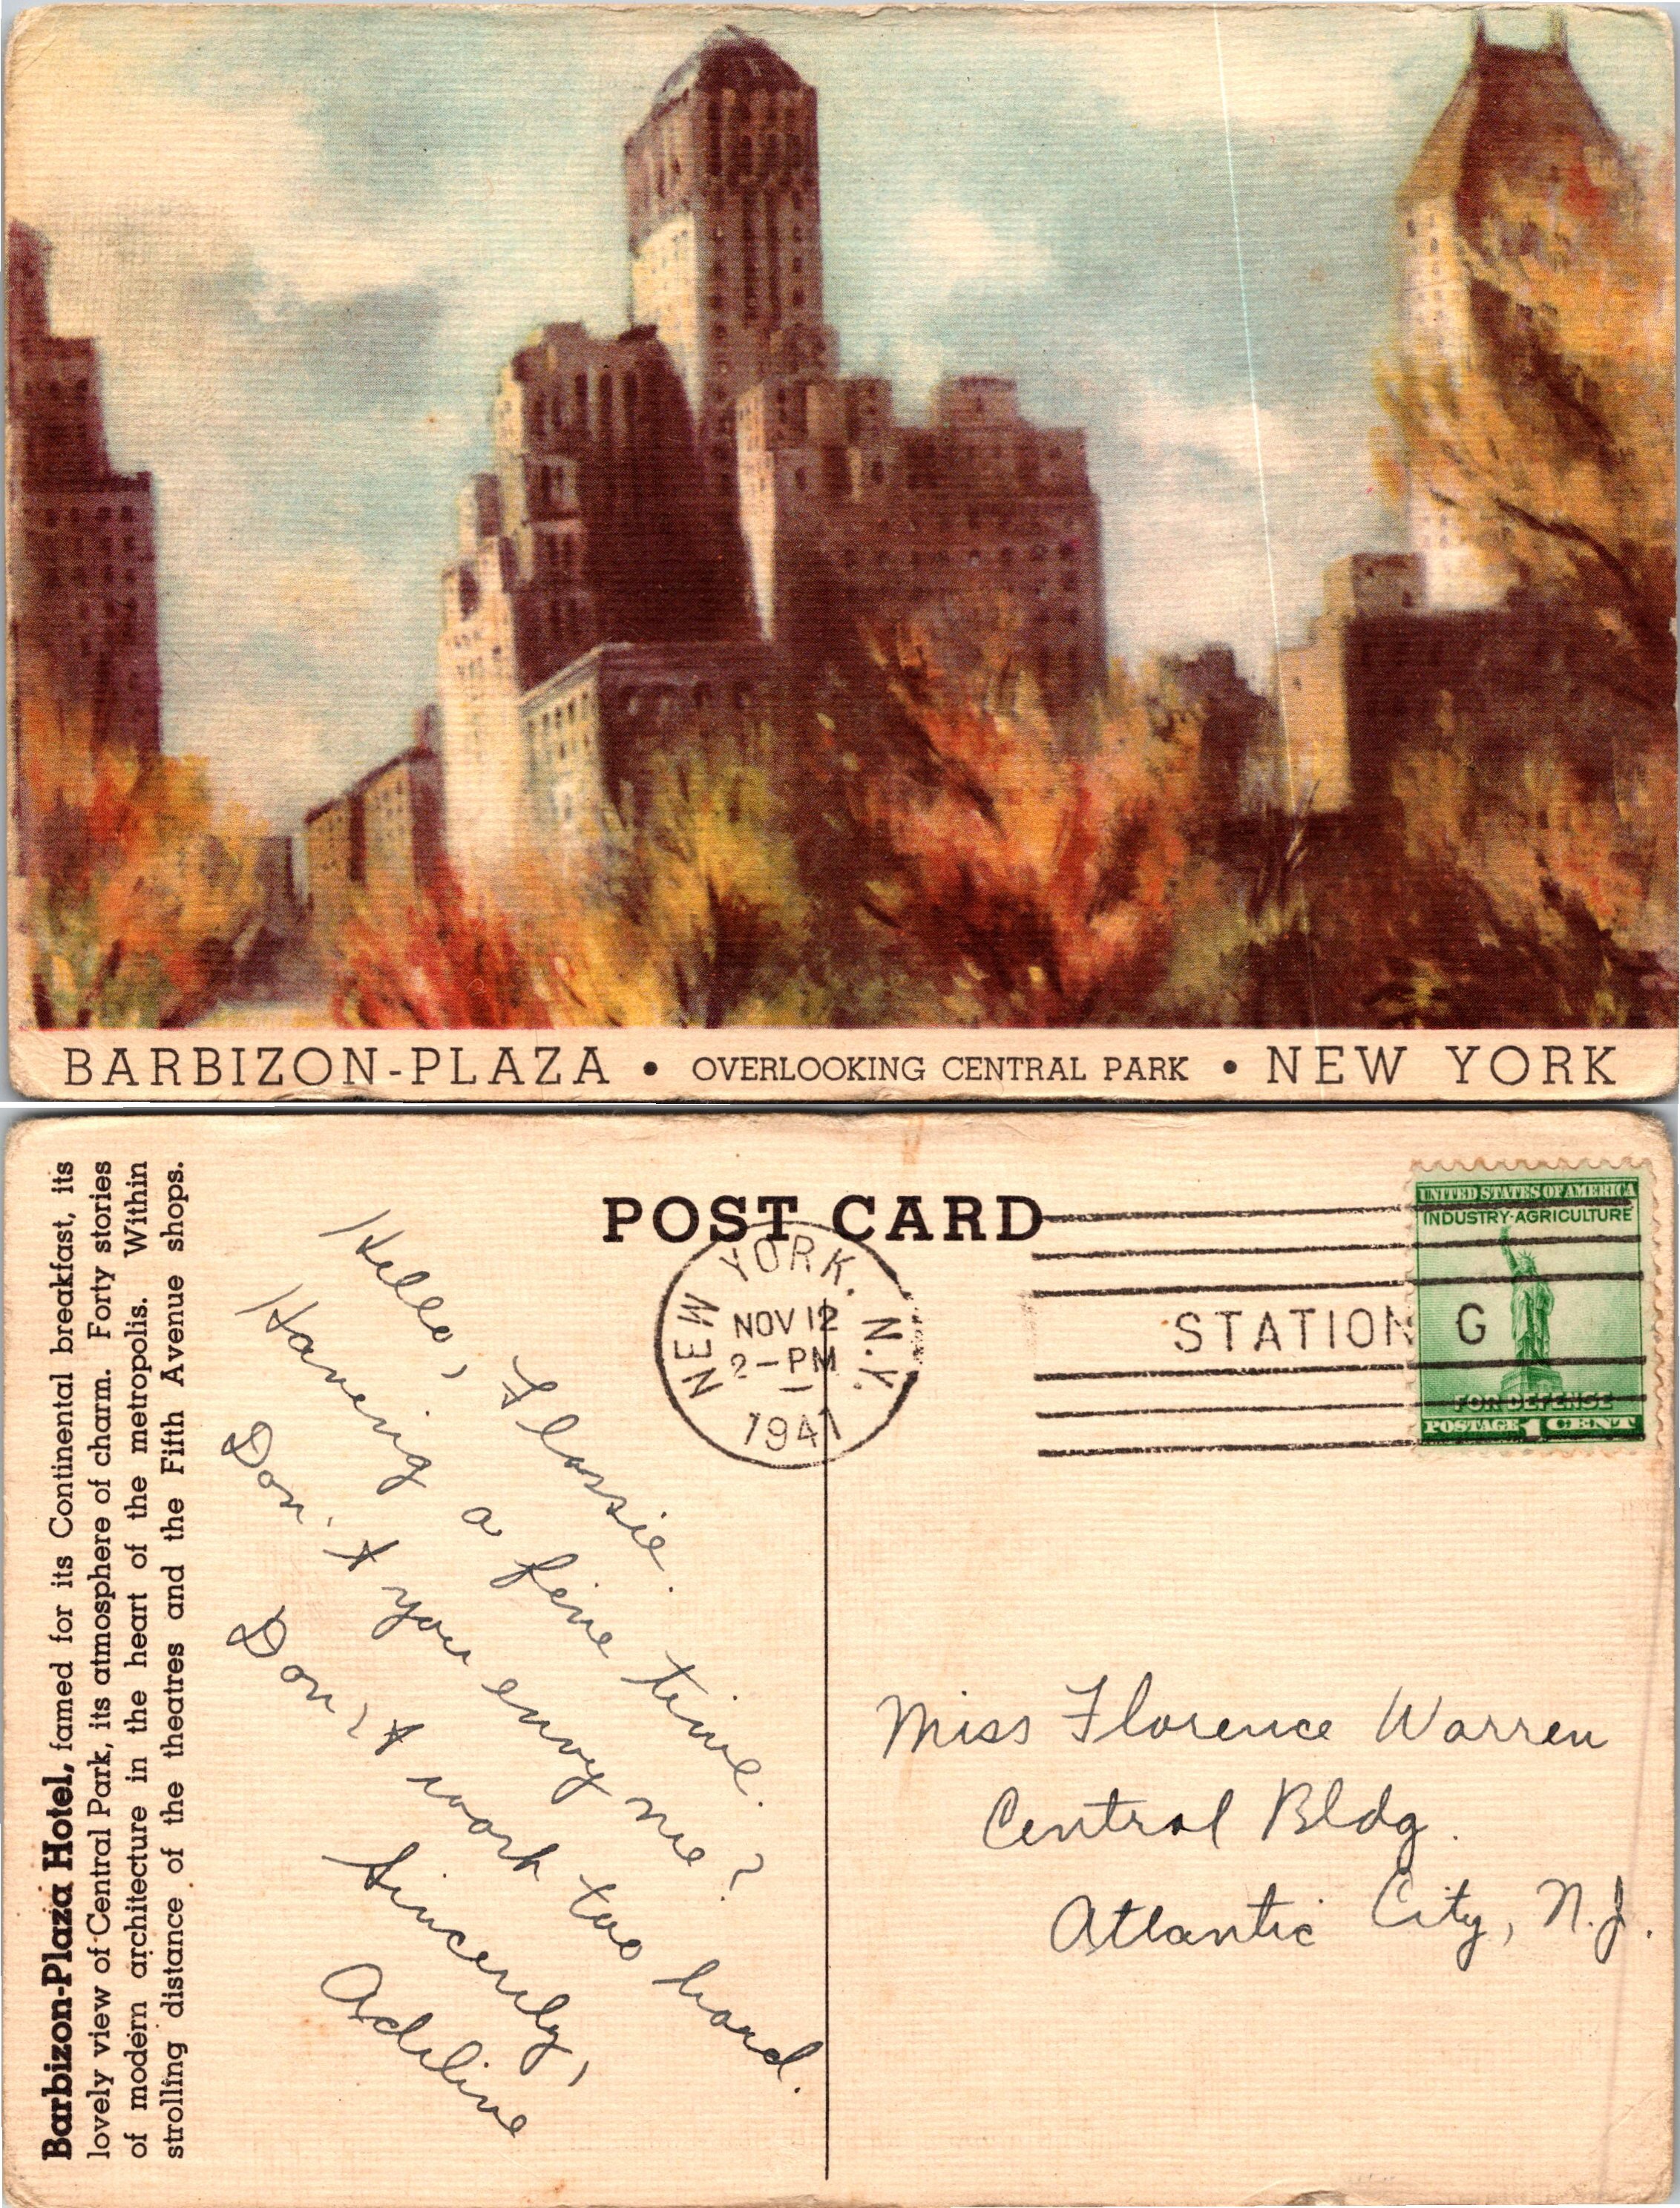 BARBIZON-PLAZA • OVERLOOKING CENTRAL PARK • NEW YORK
Barbizon-Plaza Hotel, famed for its Continental breakfast, its
lovely view of Central Park, its atmosphere of charm. Forty stories
of modern architecture in the heart of the metropolis. Within
strolling distance of the theatres and the Fifth Avenue shops.
POST CARD
NEW YORK, N.Y.
NOV 12
2-PM
1941
STATION G
UNITED STATES OF AMERICA
INDUSTRY·AGRICULTURE
FOR DEFENSE
POSTAGE 1 CENT
Hello, Flossie.
Having a fine time.
Don't you envy me?
Don't work too hard.
Sincerely,
Adeline
Miss Florence Warren
Central Bldg.
Atlantic City, N.J.